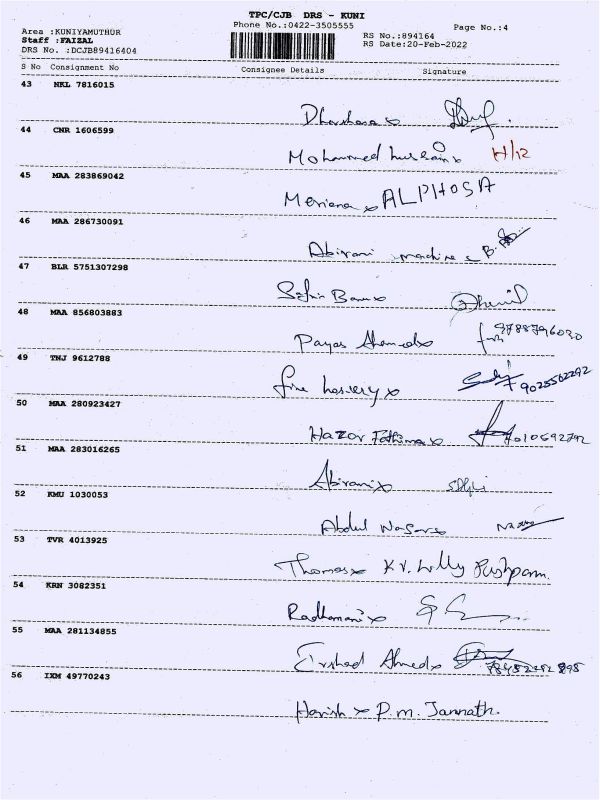 TPC/CJB DRS - KUNI
Phone No.:0422-3505555
Page No.:4
Area :KUNIYAMUTHUR
Staff :FAIZAL
DRS No. :DCJB89416404
RS No.:894164
RS Date:20-Feb-2022
S No Consignment No Consignee Details Signature
43 NKL 7816015
Dharshana x
44 CNR 1606599
Mohammed hussain x H/12
45 MAA 283869042
Meriana x ALPHOSA
46 MAA 286730091
Abirani machine x B.
47 BLR 5751307298
Safair Banu x
48 MAA 856803883
Payas Ahamed x 9788796030
49 TNJ 9612788
fine hosiery x 9025562292
50 MAA 280923427
Hazar Fathima x 7010692792
51 MAA 283016265
Abirani x
52 KMU 1030053
Abdul Nasar x
53 TVR 4013925
Thomas x K V. Lilly Pushpam.
54 KRN 3082351
Radhamani x
55 MAA 281134855
Irshad Ahmed x
56 IXM 49770243
Harish x P.m. Jannath.